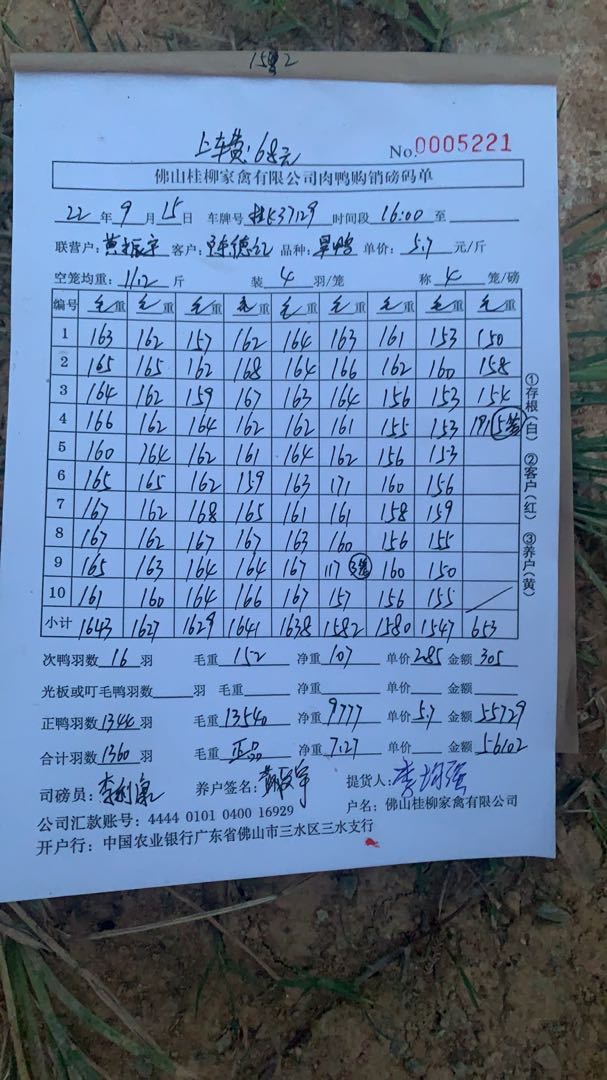 上车费:68元
No.0005221
佛山桂柳家禽有限公司肉鸭购销磅码单
22年9月15日 车牌号 桂K37129 时间段 16:00 至
联营户:黄振宇 客户:陈德红 品种: 单价:5.7元/斤
空笼均重:11.2斤 装4羽/笼 称4笼/磅
编号 毛重 毛重 毛重 毛重 毛重 毛重 毛重 毛重 毛重
1 163 162 157 162 164 163 161 153 150
2 165 165 162 168 164 166 162 160 158
3 164 162 159 167 163 164 156 153 154
4 166 162 164 162 162 161 155 153 191 5笼
5 160 164 162 161 164 162 156 153
6 165 165 162 159 163 171 160 156
7 167 162 168 165 161 161 158 159
8 167 162 167 167 163 160 156 155
9 165 163 164 164 167 117 3笼 160 150
10 161 160 164 166 167 157 156 155
小计 1643 1627 1629 1641 1638 1582 1580 1547 653
次鸭羽数16羽 毛重152 净重107 单价2.85 金额305
光板或叮毛鸭羽数 羽 毛重 净重 单价 金额
正鸭羽数1344羽 毛重13540 净重9777 单价5.7 金额55729
合计羽数1360羽 毛重正品 净重7.27 单价 金额56102
司磅员: 养户签名:黄振宇 提货人:李均强
公司汇款账号:4444 0101 0400 16929 户名:佛山桂柳家禽有限公司
开户行:中国农业银行广东省佛山市三水区三水支行
①存根(白) ②客户(红) ③养户(黄)